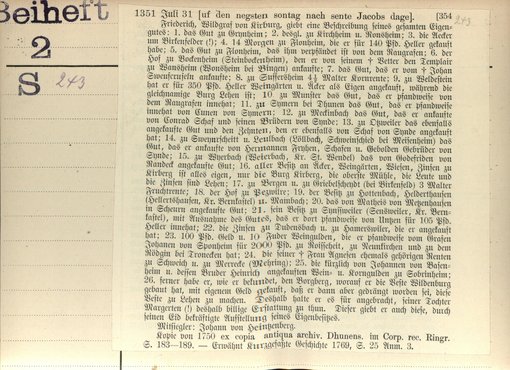 Beiheft
2
S 243
1351 Juli 31 [uf den negsten sontag nach sente Jacobs dage]. [354 243
Friederich, Wildgraf von Kirburg, giebt eine Beschreibung seines gesamten Eigen-
gutes: 1. das Gut zu Grynheim; 2. desgl. zu Kirchheim u. Monsheim; 3. die Aecker
um Birkenfelder (!); 4. 14 Morgen zu Flonheim, die er für 140 Pfd. Heller gekauft
habe; 5. das Gut zu Flonheim, das ihm verpfändet ist von dem Raugrafen; 6. der
Hof zu Bockenheim (Steinbockenheim), den er von seinem † Vetter den Templer
zu Wansheim (Wonsheim bei Bingen) ankufte; 7. das Gut, das er vom † Johan
ankufte; 8. zu Suffersheim 4½ Malter Kornrente; 9. zu Weldestein
hat er für 350 Pfd. Heller Weingärten u. Äcker als Eigen angekauft, während die
gleichnamige Burg Lehen ist; 10. zu Munster das Gut, das er pfandweise von
dem Raugrafen innehat; 11. zu Symern bei Dhunen das Gut, das er pfandweise
innehat von Cunen von Symern; 12. zu Meckinbach das Gut, das er ankaufte
von Conrad Schaf und seinen Brüdern von Synde; 13. zu Otzweiler das ebenfalls
angekaufte Gut und den Zehnten, den er ebenfalls von Schaf von Synde angekauft
hat; 14. zu Sweynerscheit u. Lenlbach (Löllbach, Schweinschied bei Meisenheim) das
Gut, das er ankaufte von Hermannen Fruhen, Schafen u. Gebolden Gebrüder von
Synde; 15. zu Wyerbach (Weierbach, Kr. St. Wendel) das von Godefriden von
Randek angekaufte Gut; 16. aller Besitz an Äcker, Weingärten, Wiesen, Zinsen zu
Kirberg ist alles eigen, nur die Burg Kirberg, die oberste Mühle, die Leute und
die Zinsen sind Lehen; 17. zu Bergen u. zu Griebelschendt (bei Birkenfeld) 3 Malter
Fruchtrente; 18. der Hof zu Pezwilre; 19. der Besitz zu Hottenbach, Helderthusen
(Hellertshausen, Kr. Bernkastel) u. Rambach; 20. das von Matheis von Metzenhausen
in Scheuren angekaufte Gut; 21. sein Besitz zu Synßwiler (Sensweiler, Kr. Bern-
kastel), mit Ausnahme des Gutes, das er dort pfandweise von Unhen für 105 Pfd.
Heller innehat; 22. die Zinsen zu Dudensbach u. zu Hamerswiler, die er angekauft
hat; 23. 100 Pfd. Geld u. 10 Fuder Weingulden, die er pfandweise vom Grafen
Johann von Sponheim für 2000 Pfd. zu Kolscheit, zu Nemkirchen und zu dem
Rödgin bei Troneckem hat; 24. die seiner † Frau Agnesien ehemals gehörigen Renten
zu Schweich u. zu Merrecke (Mehring); 25. die kürzlich von Johann von Basen-
heim u. dessen Bruder Heinrich angekauften Wein- u. Korngulden zu Sobrinheim;
26. ferner habe er, wie er bekundet, den Borgberg, worauf er die Veste Wildenburg
gebaut hat, mit eigenem Geld gekauft, daß er dann aber gedrängt worden sei, diese
Veste zu Lehen zu machen. Deshalb halte er es für angebracht, seiner Tochter
Margerten (!) deshalb billige Erstattung zu thun. Dieser giebt er auch diese, durch
seinen Eid bekräftigte Aufstellung seines Eigenbesitzes.
Mitsiegler: Johann von Heintzenberg.
Kopie von 1750 ex copia antiqua archiv. Dhunens. im Corp. rec. Ringr.
S. 183—189. — Erwähnt Kurzgefaßte Geschichte 1769, S. 25 Anm. 3.